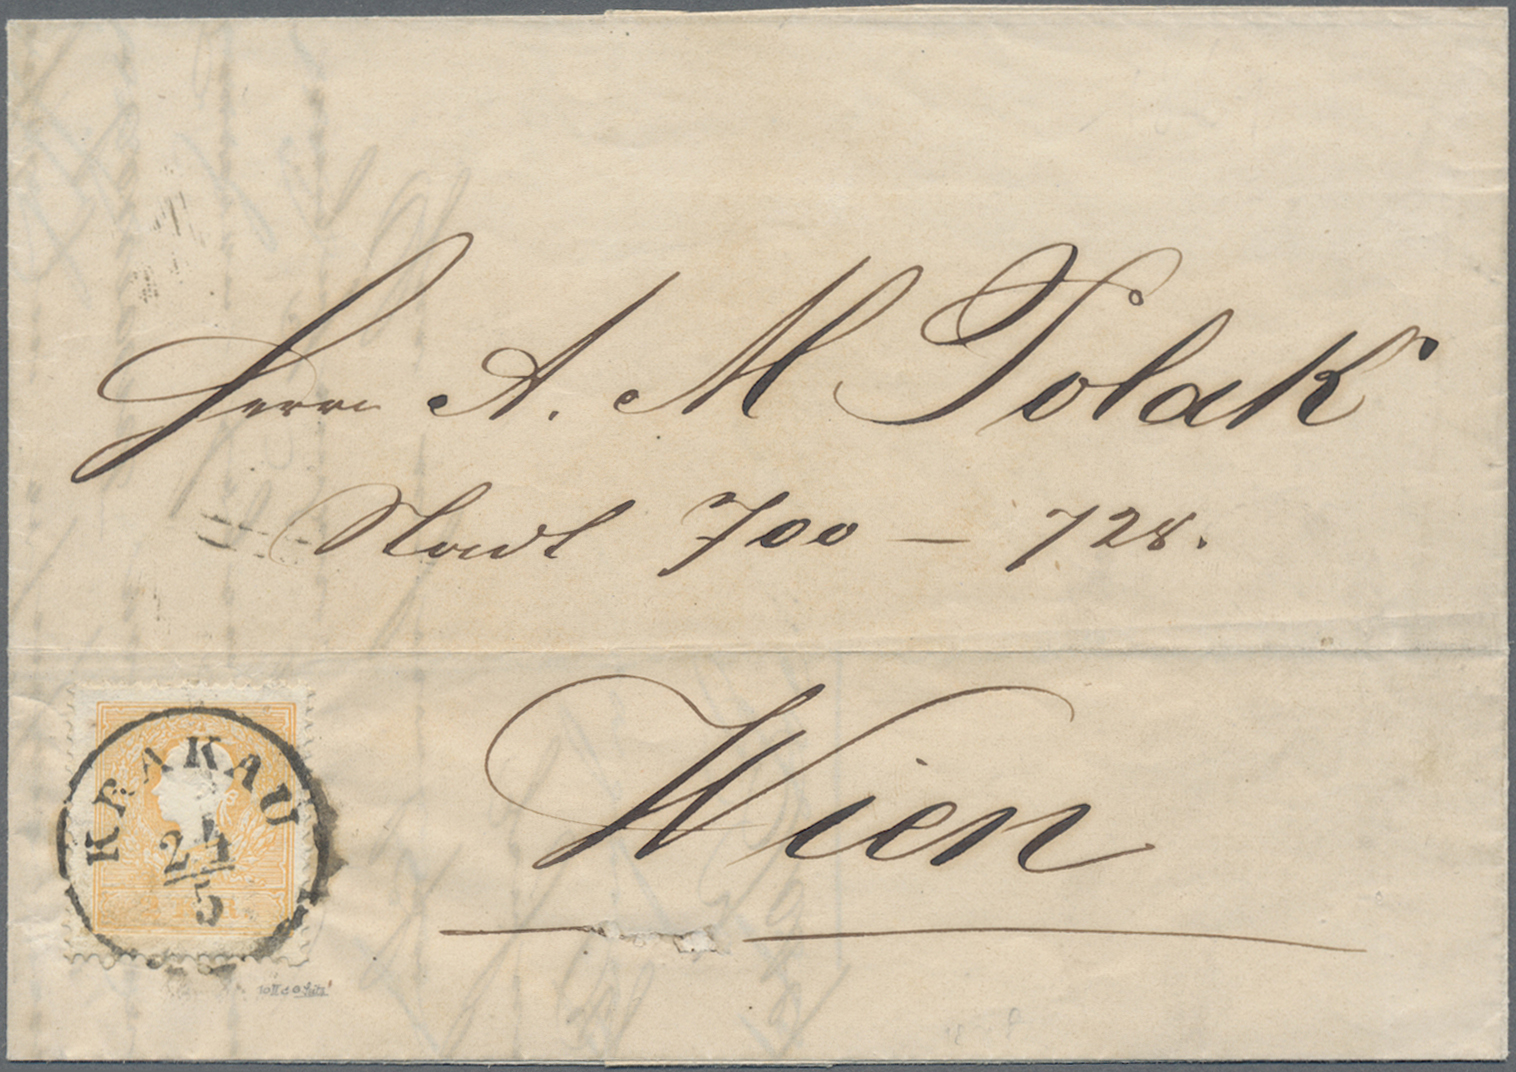 Herrn A. M Polak
Stadt 700 — 728.
Wien
KRAKAU
24
5
2 KR.